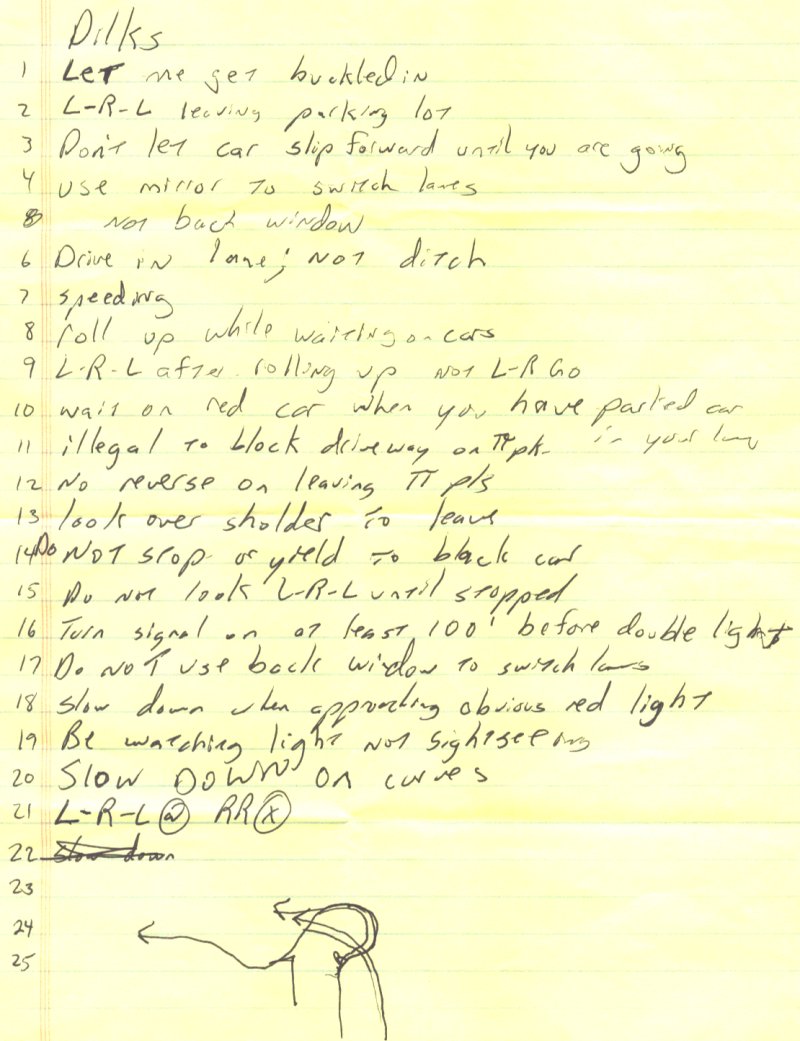 Dilks
1 Let me get buckled in
2 L-R-L leaving parking lot
3 Don't let car slip forward until you are going
4 use mirror to switch lanes
8 not back window
6 Drive in lane; not ditch
7 speeding
8 roll up while waiting on cars
9 L-R-L after rolling up not L-R Go
10 wait on red car when you have parked car
in your lane
11 illegal to block driveway on π pk.
12 No reverse on leaving π pk
13 look over sholder to leave
14 Do NOT stop or yield to black car
15 Do not look L-R-L until stopped
16 Turn signal on at least 100' before double light
17 Do NOT use back window to switch lanes
18 Slow down when approaching obvious red light
19 Be watching light not sightseeing
20 SLOW DOWN ON curves
21 L-R-L @ RR X
22 Slow down
23
24
25